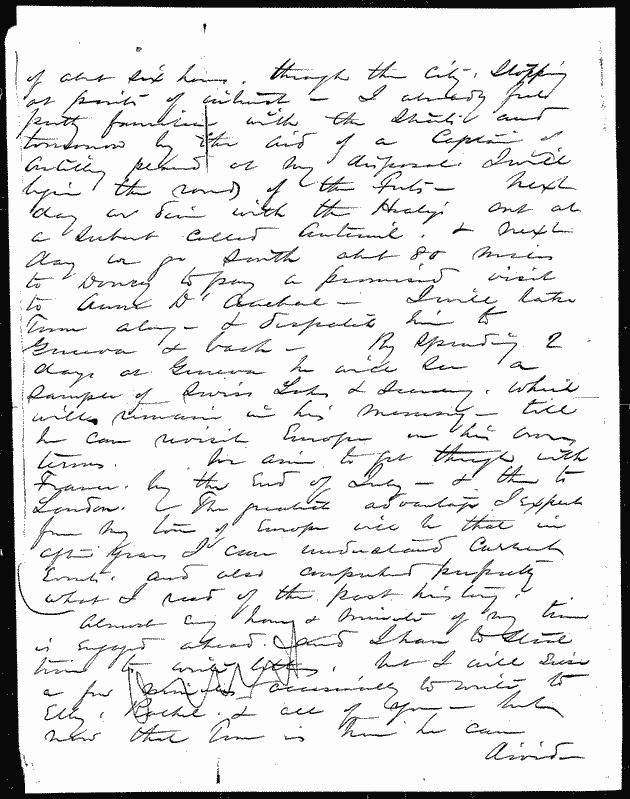 of abt six hours, through the City, stopping
at points of interest – I already feel
pretty familiar with the streets and
tomorrow by the aid of a Captain of
Artillery placed at my disposal I will
begin the round of the forts – Next
day we dine with the Healys out at
a suburb called Auteuil, & next
day we go South abt 80 miles
to Donzy to pay a promised visit
to Aunt D'Aachal – I will take
Tom along – & dispatch him to
Geneva & back – By spending 2
days at Geneva he will see a
sample of Swiss Lakes & Scenery, which
will remain in his memory – till
he can revisit Europe on his own
terms. We aim to get through with
France, by the End of July – & then to
London. The greatest advantage I expect
from my tour of Europe will be that in
after years I can understand Current
Events, and also comprehend properly
what I read of the past history.
Almost every hour & minute of my time
is engaged ahead, and I have to steal
time to write letters, but I will seize
a few minutes occasionally to write to
Elly, Rachel & all of you – but
now that Tom is here he can
divide